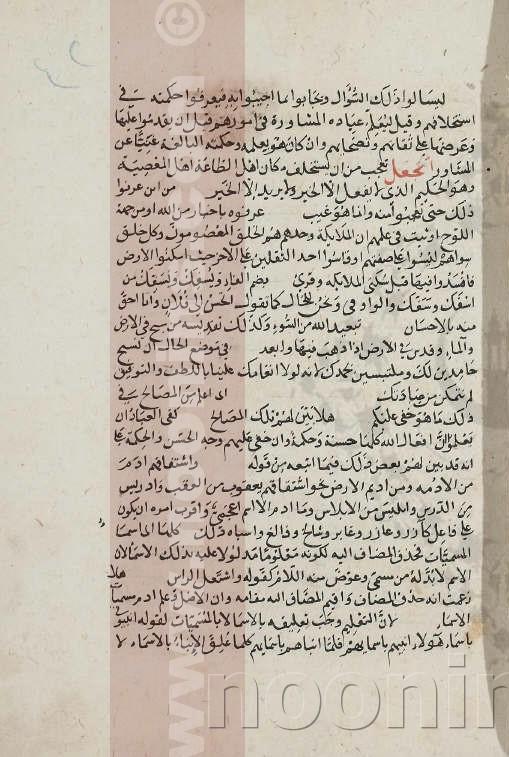 ليسالوا ذلك السؤال ويجابوا بما اجيبوا به فيعرفوا حكمته في
استخلافهم وقيل ليعلم عباده المشاورة في امورهم قبل ان يقدموا عليها
وعرضها على ثقاتهم ونصحايهم وان كان هو بعلمه وحكمته البالغة غنيا عن
المشاورة اتجعل تعجب من ان يستخلف مكان اهل الطاعة اهل المعصية
وهو الحكيم الذي لا يفعل الا الخير ولا يريد الا الخير من اين عرفوا
ذلك حتى تعجبوا منه وانما هو غيب عرفوه باخبار من الله او من جهة
اللوح او ثبت في علمهم ان الملايكة وحدهم هم الخلق المعصومون وكل خلق
سواهم ليسوا على صفتهم او قاسوا احد الثقلين على الاخر حيث اسكنوا الارض
فافسدوا فيها قبل سكنى الملايكة وقري بضم الفاء ويُسفك ويسفّك من
اسفك وسفّك والواو في ونحن للحال كما تقول اتحسن الى فلان وانا احق
منه بالاحسان تبعيد الله من السوء وكذلك تقديسه من سبح في الارض
والماء وقدس في الارض اذا ذهب فيها وابعد في موضع الحال اي نسبح
حامدين لك وملتبسين بحمدك لانه لولا انعامك علينا باللطف والتوفيق
لم نتمكن من عبادتك اي اعلم من المصالح في
ذلك ما هو خفي عليكم هلا بين لهم تلك المصالح كفى العباد ان
يعلموا ان افعال الله كلها حسنة وحكمة وان خفي عليهم وجه الحسن والحكمة على
انه قد بين لهم بعض ذلك فيما اتبعه من قوله واشتقاقهم ادم
من الادمة ومن اديم الارض نحو اشتقاقهم يعقوب من العقب وادريس
من الدرس وابليس من الابلاس وما ادم الا اسم اعجمي واقرب امره ان يكون
على فاعل كازر وعازر وعابر وشالخ وفالغ واشباه ذلك كلها اي اسما
المسميات فحذف المضاف اليه لكونه معلوما مدلولا عليه بذكر الاسما لان
الاسم لا بد له من مسمى وعوض منه اللام كقوله واشتعل الراس هلا
زعمت انه حذف المضاف واقيم المضاف اليه مقامه وان الاصل وعلم ادم مسميات
الاسماء لان التعليم وجب تعليقه بالاسما لا بالمسميات لقوله انبوني
باسماء هولاء انبيهم باسمايهم فلما انباهم باسمايهم فكما علق الانباء بالاسماء لا
www.noonin
noonin